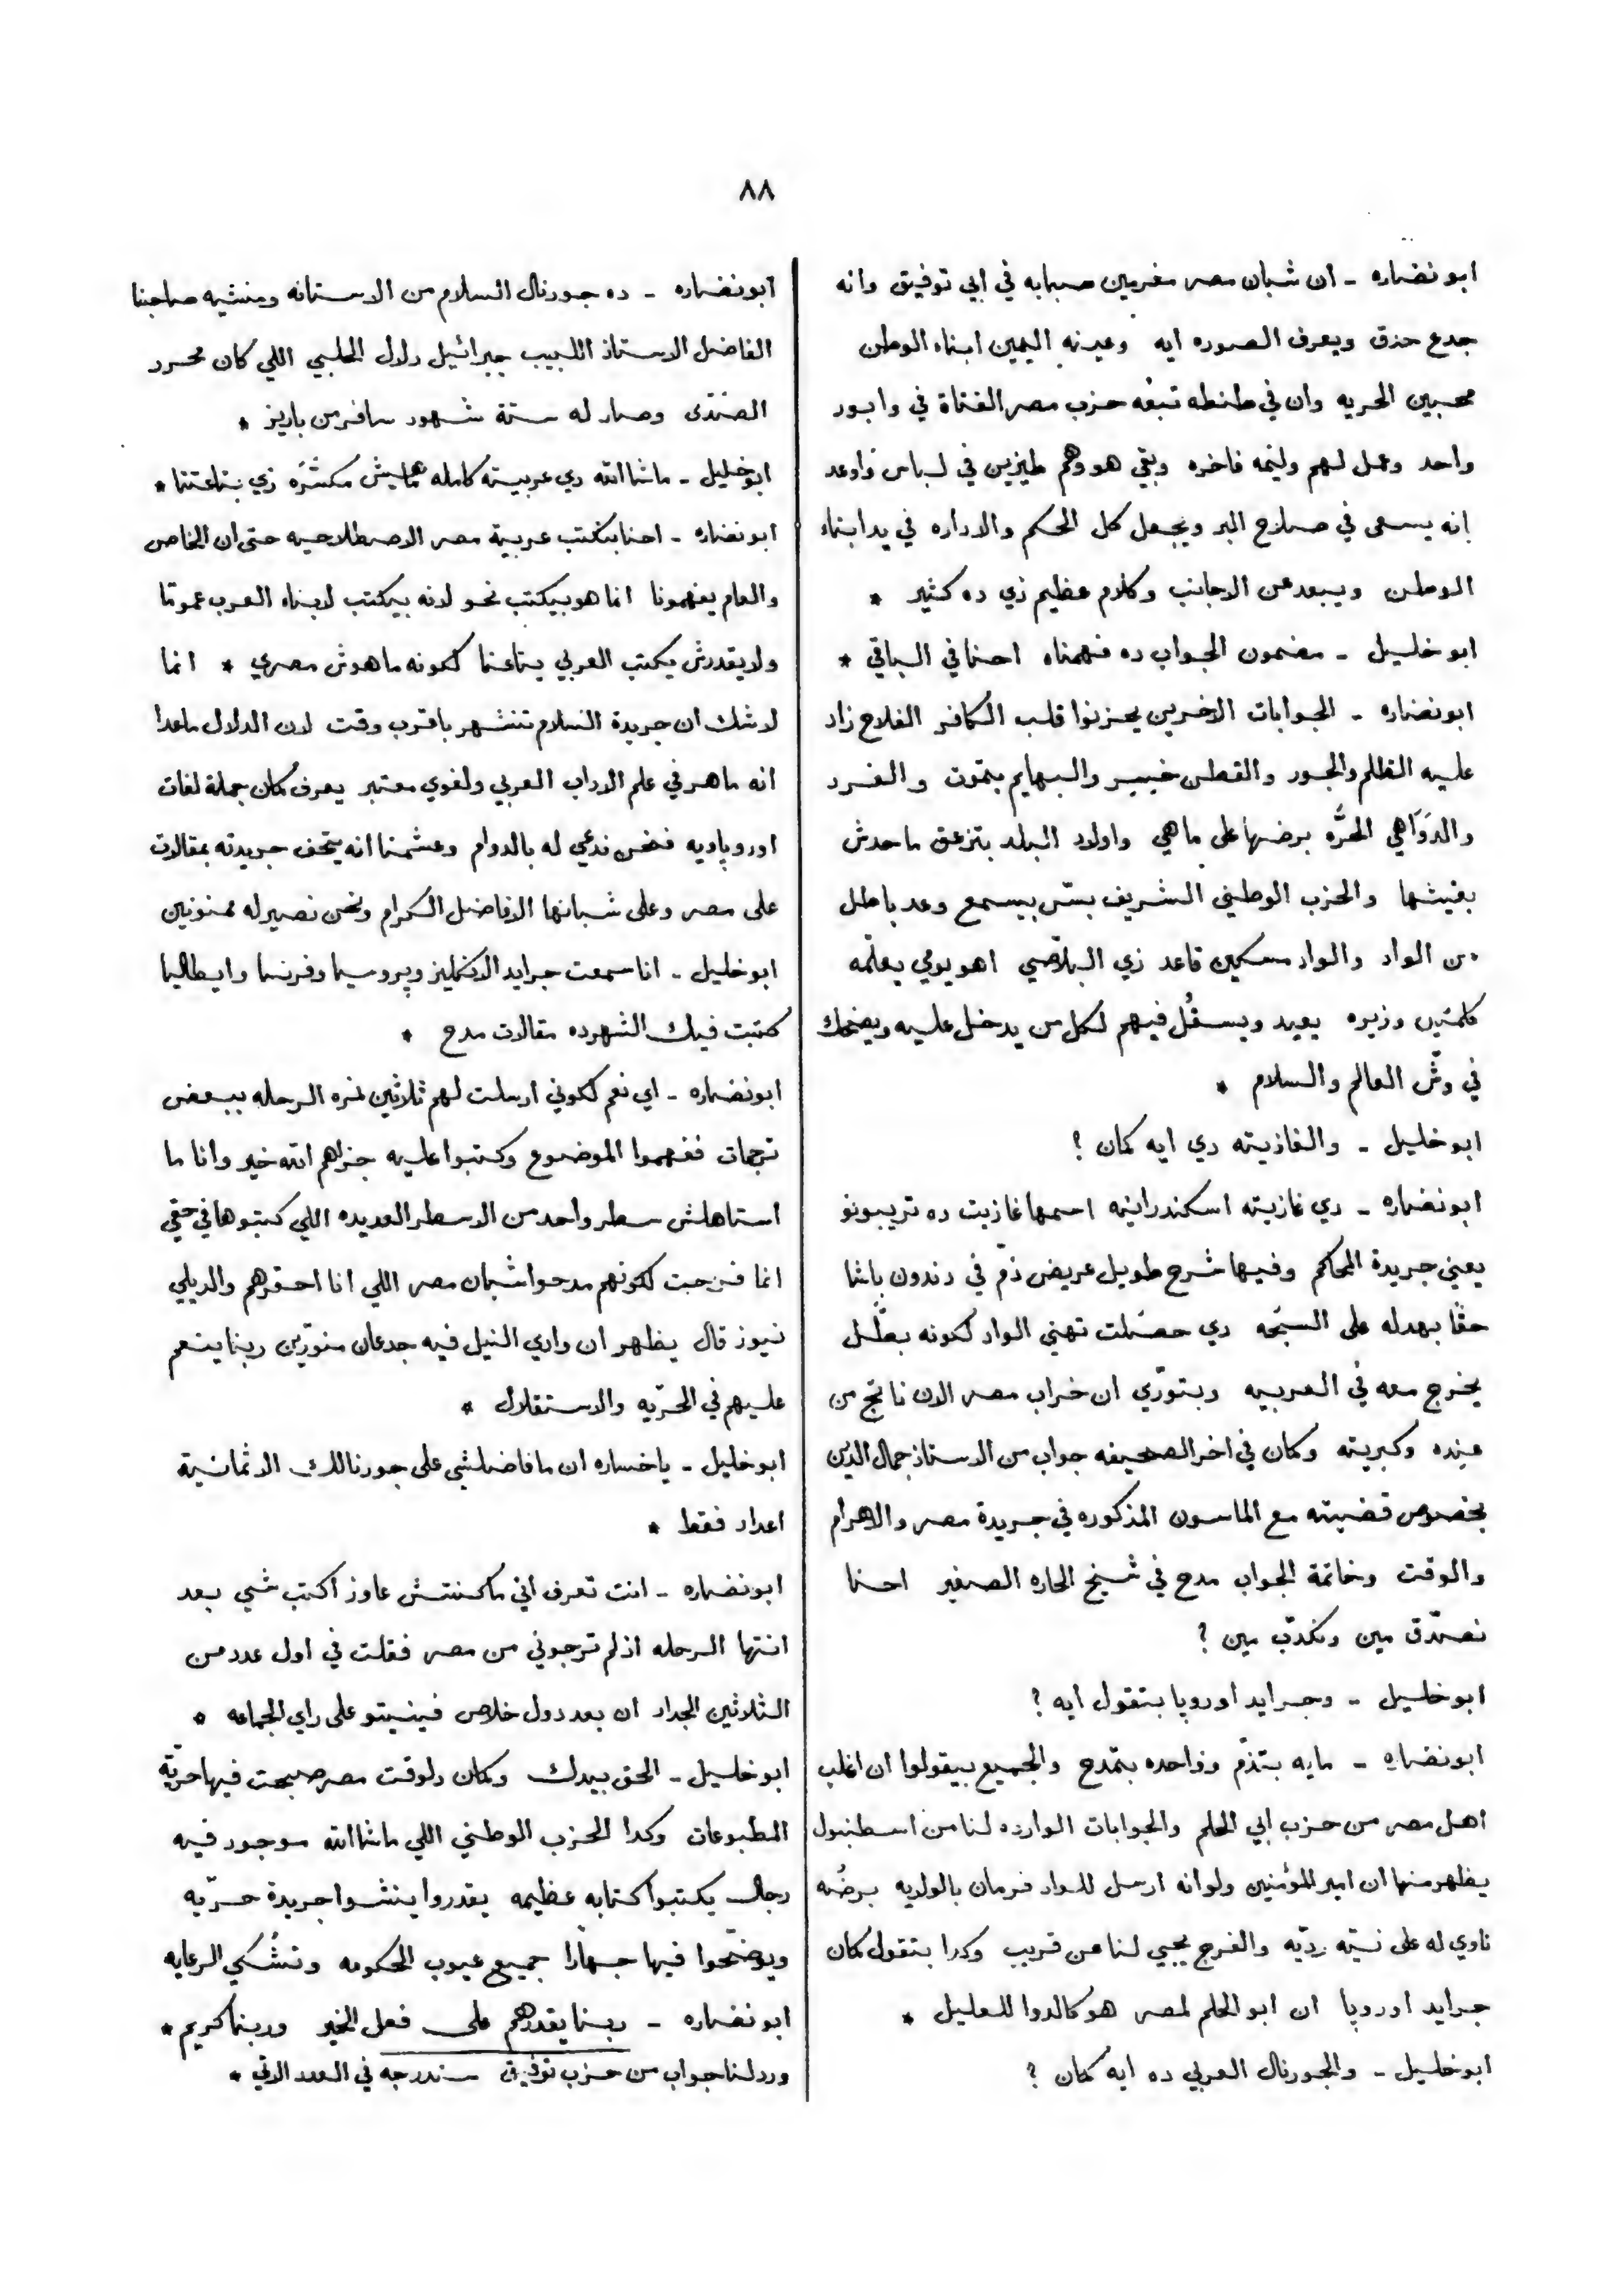 ٨٨
ابو نضاره - ان شبان مصر مغرمين صبابه في ابي توفيق وانه
جدع حذق ويعرف الصوره ايه وعينه اليمين ابناء الوطن
محبين الحريه وان في طنطه تبعه حزب مصر الفتاة في وابور
واحد وعمل لهم وليمه فاخره وبقي هو وهم طيزين في لباس واوعد
انه يسعى في صلاح البر ويجعل كل الحكم والاداره في يد ابناء
الوطن ويبعد عن الاجانب وكلام عظيم زي ده كثير *
ابو خليل - مضمون الجواب ده فهمناه احنا في الباقي *
ابو نضاره - الجوابات الاخرين يحزنوا قلب الكافر الفلاح زاد
عليه الظلم والجور والقطن خيبر والبهايم بتموت والفرد
والدواهي الحره برضها على ماهي واولاد البلد بتزعق ماحدش
بغيثها والحزب الوطني الشريف بس بيسمع وعد باطل
من الواد والواد مسكين قاعد زي البلاصي اهو يومي يعلمه
كلمتين وزيره يعيد ويسقل فيهم لكل من يدخل عليه ويضحك
في وش العالم والسلام *
ابو خليل - والغازيته دي ايه كمان ؟
ابو نضاره - دي غازيته اسكندرانيه اسمها غازيت ده تريبونو
يعني جريدة المحاكم وفيها شرح طويل عريض ذم في دندون باشا
حقا بهدله على السبحه دي حصلت تهني الواد لكونه بطل
يخرج معه في العربيه وبتوري ان خراب مصر الان ناتج من
عنده وكبريته وكان في اخر الصحيفه جواب من الاستاذ جمال الدين
بخصوص قضيته مع الماسون المذكوره في جريدة مصر والاهرام
والوقت وخاتمة الجواب مدح في شيخ الحاره الصغير احنا
نصدق مين ونكدب مين ؟
ابو خليل - وجرايد اوروپا بتقول ايه ؟
ابو نضاره - مايه بتذم وواحده بتمدح والجميع بيقولوا ان اغلب
اهل مصر من حزب ابي الحلم والجوابات الوارده لنا من اسطنبول
يظهر منها ان امير المؤمنين ولو انه ارسل للواد فرمان بالولايه برضه
ناوي له على نيه رديه والفرج يجيي لنا عن قريب وكدا بتقول كمان
جرايد اوروپا ان ابو الحلم لمصر هو كالدوا للعليل *
ابو خليل - والجورنال العربي ده ايه كمان ؟
ابو نضاره - ده جورنال السلام من الاستانه ومنشيه صاحبنا
الفاضل الاستاذ اللبيب جبرائيل دلال الحلبي اللي كان محرر
الصدى وصار له ستة شهور سافر من باريز *
ابو خليل - ماشاالله دي عربيته كامله ماهيش مكسره زي بتاعتنا *
ابو نضاره - احنا بنكتب عربية مصر الاصطلاحيه حتى ان الخاص
والعام يفهمونا انما هو بيكتب نحو لانه بيكتب لابناء العرب عموما
ولا يقدرش يكتب العربي بتاعنا لكونه ماهوش مصري * انما
لاشك ان جريدة السلام تنشهر باقرب وقت لان الدلال ماعدا
انه ماهر في علم الاداب العربي ولغوي معتبر يعرف كمان جملة لغات
اوروپاويه فنحن ندعي له بالدوام وعشمنا انه يتحف جريدته بمقالات
على مصر وعلى شبانها الافاضل الكرام ونحن نصير له ممنونين
ابو خليل - انا سمعت جرايد الانكليز وپروسيا وفرنسا وايطاليا
كتبت فيك الشهر ده مقالات مدح *
ابو نضاره - اي نعم لكوني ارسلت لهم ثلاثين نمره الرحله ببعض
ترجمات ففهموا الموضوع وكتبوا عليه جزاهم الله خير وانا ما
استاهلش سطر واحد من الاسطر العديده اللي كتبوها في حقي
انما فرحت لكونهم مدحوا شبان مصر اللي انا احقرهم والديلي
نيوز قال يظهر ان وادي النيل فيه جدعان منورين ربنا ينعم
عليهم في الحريه والاستقلال *
ابو خليل - ياخساره ان مافاضلشي على جورنالك الا ثمانية
اعداد فقط *
ابو نضاره - انت تعرف اني ماكنتش عاوز اكتب شي بعد
انتها الرحله اذ لم ترجوني من مصر فقلت في اول عدد من
الثلاثين الجداد ان بعد دول خلاص فينيتو على راي الجماعه *
ابو خليل - الحق بيدك وكمان دلوقت مصر صبحت فيها حرية
المطبوعات وكدا الحزب الوطني اللي ماشاالله موجود فيه
رجال يكتبوا كتابه عظيمه يقدروا ينشوا جريدة حريه
ويوضحوا فيها جهارا جميع عيوب الحكومه وتشكي الرعايه
ابو نضاره - ربنا يقدرهم على فعل الخير وربنا كريم *
ورد لنا جواب من حزب توفيق سندرجه في العدد الاتي *